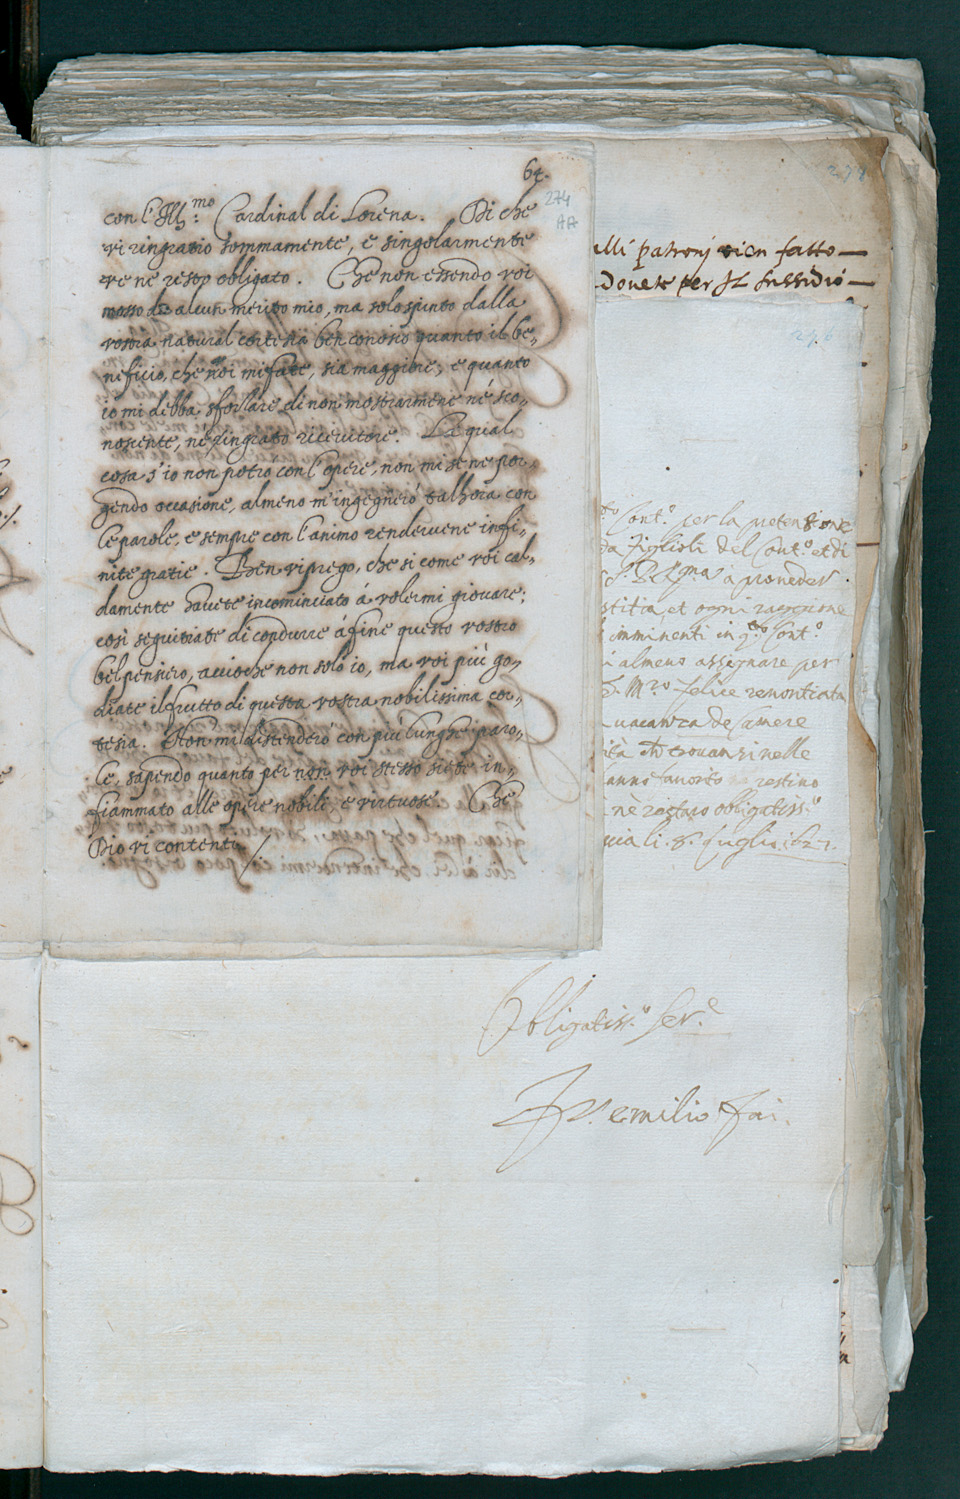 64.
274
AA
con l'Ill.mo Cardinal di Lorena. Di che
vi ringratio sommamente, e singolarmente
ve ne resto obligato. Che non essendo voi
mosso da alcun merito mio, ma solo spinto dalla
vostra natural cortesia ben conosco quanto il be-
neficio, che voi mi fate, sia maggiore, e quanto
io mi debba sforzare di non mostrarmene né sco-
noscente, ne ingrato ricevitore. La qual
cosa s'io non potro con l'opere, non mi se ne por-
gendo occasione, almeno m'ingegnerò talhora con
le parole, e sempre con l'animo rendervene infi-
nite gratie. Ben vi prego, che si come voi cal-
damente havete incominciato á volermi giovare;
così seguitiate di condurre á fine questo vostro
bel pensiero, accioche non solo io, ma voi più go-
diate il frutto di questa vostra nobilissima cor-
tesia. Non mi distenderò con più lunghe paro-
le, sapendo quanto per voi stesso siete in-
fiammato alle opere nobili, e virtuose. Che
Dio vi contenti.
278
alli patroni vien fatto
Dovete per Il sussidio
276
Cont.o per la pretensione
figlioli del Cont.o et di
à proveder
stitia, et ogni raggione
imminenti in q.to Cont.o
almeno assegnare per
felice
vacanza de Camere
trovansi nelle
restino
nè restaro obligatiss.o
li. 8. luglio. 1627.
Obligatiss.o Ser.e
emilio